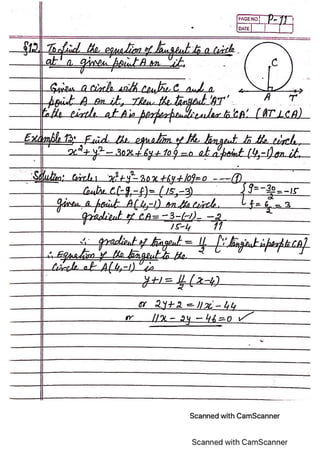 PAGE NO. P-11
DATE
§12. To find the equation of tangent to a circle
at a given point A on it.
C
A T
Given a circle with centre C and a
point A on it, Then the tangent 'AT'
to the circle at A is perpendicular to CA. (AT⊥CA)
Example 13: Find the equation of the tangent to the circle.
x²+y²-30x+6y+109=0 at a point (4,-1) on it.
Solution: Circle: x²+y²-30x+6y+109=0 ---①
{g = -30/2 = -15
Centre C(-g,-f) = (15,-3)
{f = 6/2 = 3
given a point A(4,-1) on the circle.
gradient of CA = -3-(-1)/15-4 = -2/11
∴ gradient of tangent = 11/2 [∵ tangent is perp to CA]
∴ Equation of the tangent to the
Circle at A(4,-1) is
y+1 = 11/2 (x-4)
or 2y+2 = 11x-44
or 11x-2y-46=0 ✓
Scanned with CamScanner
Scanned with CamScanner